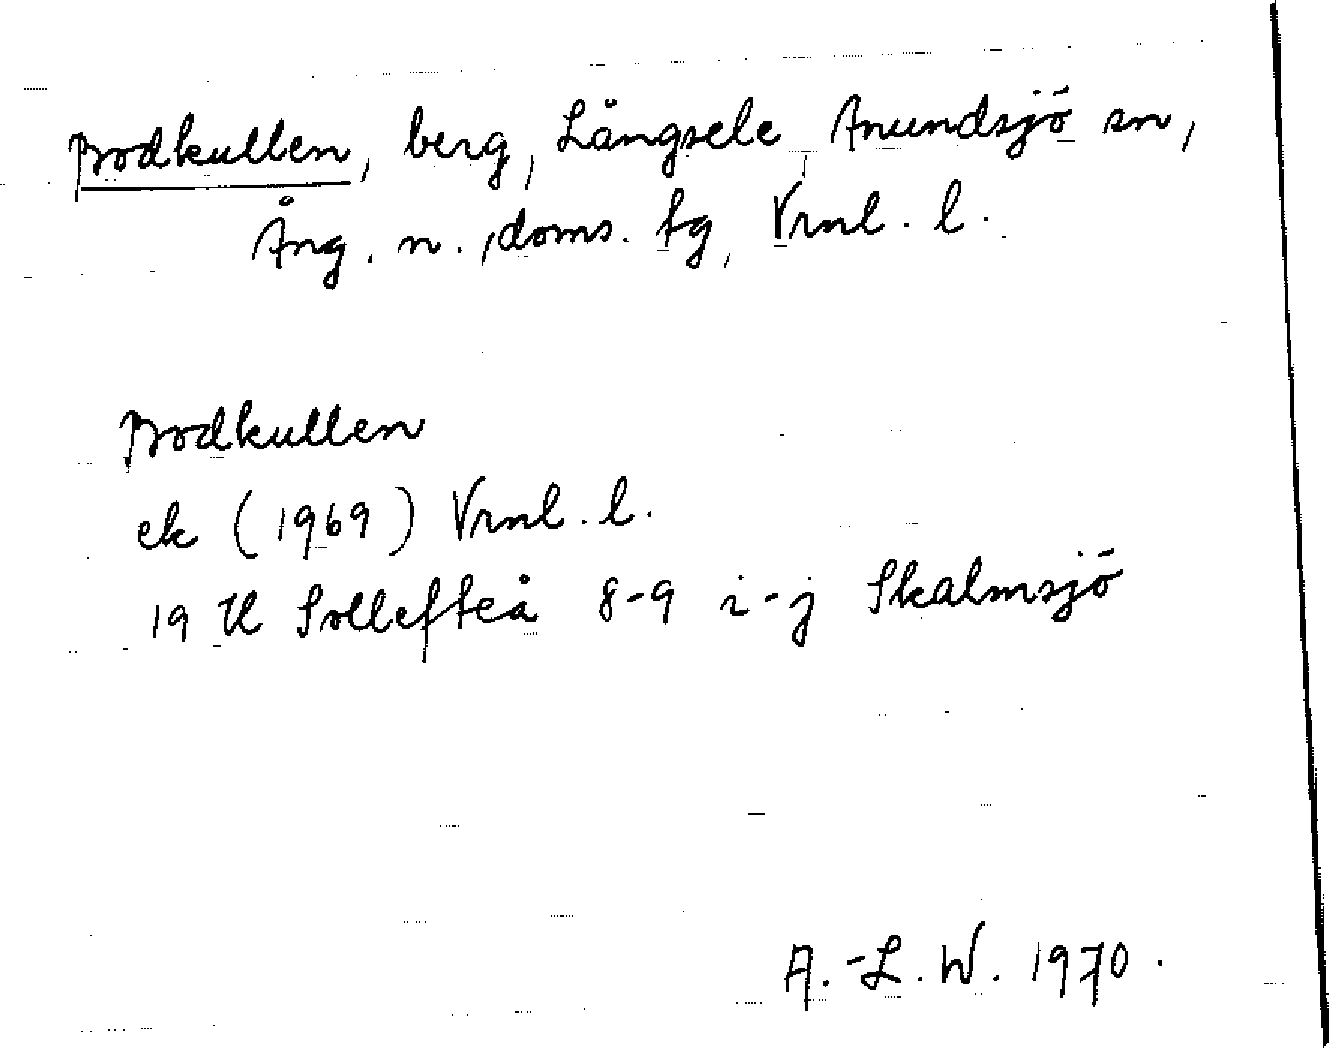 Brodkullen, berg, Långsele, Anundsjö sn,
Ång. n., doms. tg, Vrnl. l.
Brodkullen
ek (1969) Vrnl. l.
19 H Sollefteå 8-9 i-j Skalmsjö
A.-L. W. 1970.